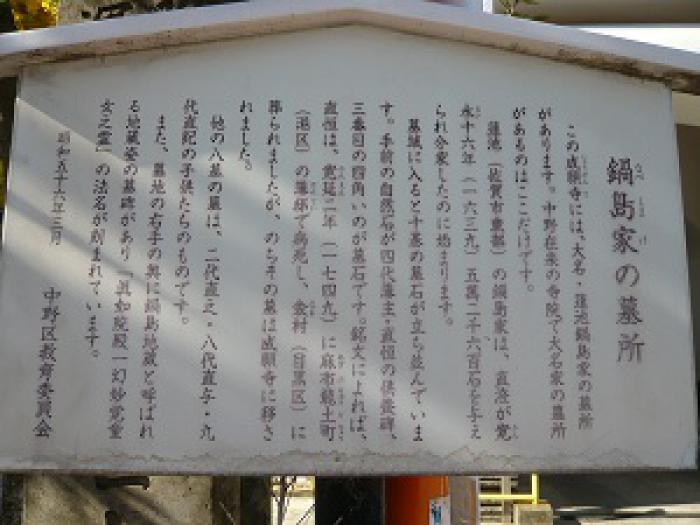 鍋島家の墓所
この成願寺には、大名・蓮池鍋島家の墓所
があります。中野在来の寺院で大名家の墓所
があるのはここだけです。
蓮池(佐賀市東部)の鍋島家は、直澄が寛
永十六年(一六三九)五萬二千六百石を与え
られ分家したのに始まります。
墓域に入ると十基の墓石が立ち並んでいま
す。手前の自然石が四代藩主・直恒の供養碑、
三番目の四角いのが墓石です。銘文によれば、
直恒は、寛延二年(一七四九)に麻布龍土町
(港区)の藩邸で病死し、金村(目黒区)に
葬られましたが、のちその墓は成願寺に移さ
れました。
他の八基の墓は、二代直之・八代直与・九
代直紀の子供たちのものです。
また、墓地の右手の奥に鍋島地蔵と呼ばれ
る地蔵姿の墓碑があり「真如院殿一幻妙覚童
女之霊」の法名が刻まれています。
昭和五十六年三月
中野区教育委員会